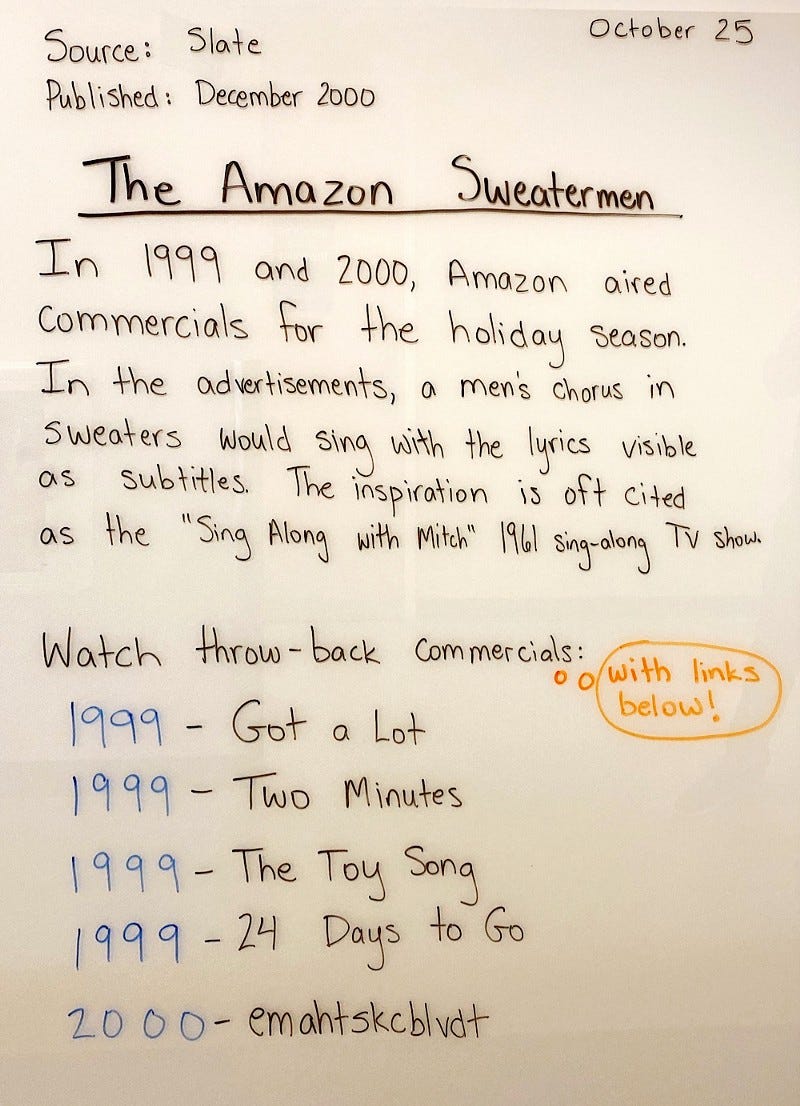 October 25
Source: Slate
Published: December 2000
The Amazon Sweatermen
In 1999 and 2000, Amazon aired
commercials for the holiday season.
In the advertisements, a men's chorus in
sweaters would sing with the lyrics visible
as subtitles. The inspiration is oft cited
as the "Sing Along with Mitch" 1961 sing-along TV show.
Watch throw-back commercials:
with links
below!
1999 - Got a Lot
1999 - Two Minutes
1999 - The Toy Song
1999 - 24 Days to Go
2000 - emahtskcblvdt